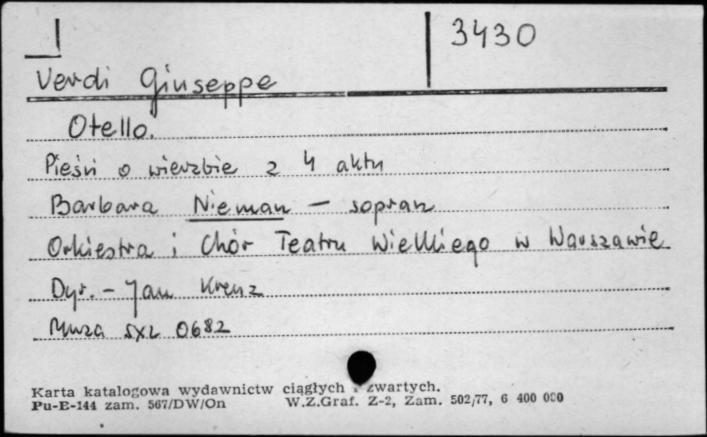 3430
Verdi Giuseppe
Otello.
Pieśń o wierzbie z 4 aktu
Barbara Nieman – sopran
Orkiestra i Chór Teatru Wielkiego w Warszawie
Dyr. – Jan Krenz
Muza SXL 0682
Karta katalogowa wydawnictw ciągłych i zwartych.
Pu-E-144 zam. 567/DW/On W.Z.Graf. Z-2, Zam. 502/77, 6 400 000